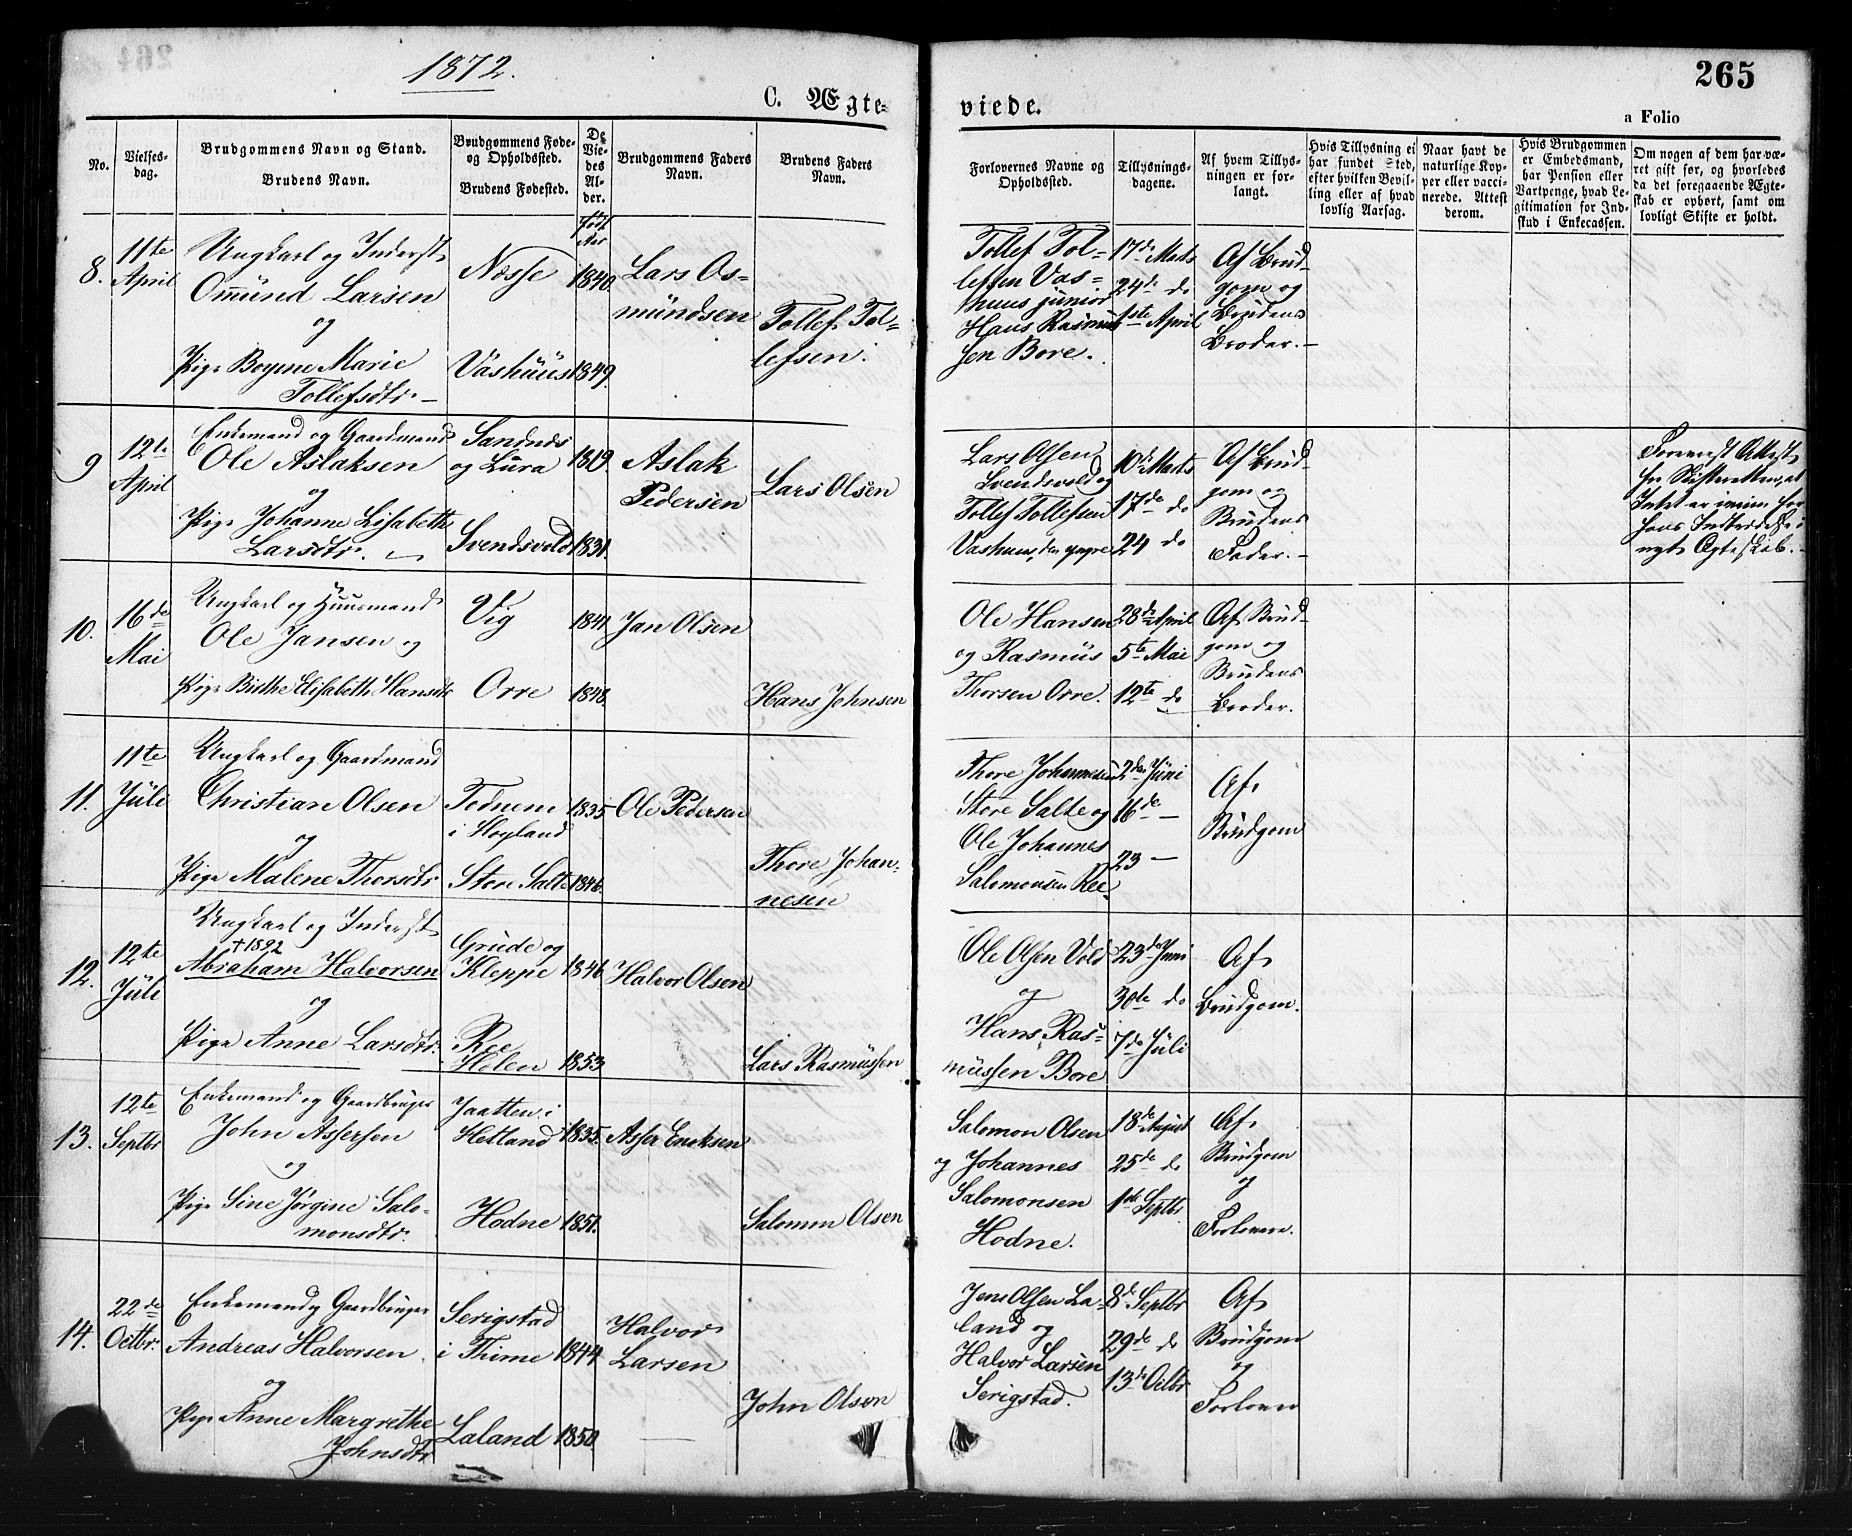 1872.
265
C. Ægte-
viede.
a Folio
No.
Vielses-
dag.
Brudgommens Navn og Stand.
Brudens Navn.
Brudgommens Føde-
og Opholdssted.
Brudens Fødested.
De
Vie-
des
Al-
der.
Brudgommens Faders
Navn.
Brudens Faders
Navn.
Forlovernes Navne og
Opholdssted.
Tillysnings-
dagene.
Af hvem Tillys-
ningen er for-
langt.
Hvis Tillysning ei
har fundet Sted,
efter hvilken Bevil-
ling eller af hvad
lovlig Aarsag.
Naar havt de
naturlige Kop-
per eller vacci-
nerede. Attest
derom.
Hvis Brudgommen
er Embedsmand,
har Pension eller
Vartpenge, hvad Le-
gitimation for Ind-
skud i Enkecassen.
Om nogen af dem har væ-
ret gift før, og hvorledes
da det foregaaende Ægte-
skab er ophørt, samt om
lovligt Skifte er holdt.
8.
11te
April
Ungkarl og Inderst
Omund Larsen
og
Pige Boyme Marie
Tollefsdtr.
Næsse
Vashuus
født
Aar
1840.
1849.
Lars Os-
mundsen
Tollef Tol-
lefsen.
Tollef Tol-
lefsen Vas-
huus junior
Hans Rasmus-
sen Bore.
17de Marts
24de do
1ste April
Af Brud-
gom og
Brudens
Broder.
9
12te
April
Enkemand og Gaardmand
Ole Aslaksen
og
Pige Johanne Lisabeth
Larsdtr.
Sandnes
og Lura
Svendsvold
1819.
1831.
Aslak
Pedersen
Lars Olsen
Lars Olsen
Svendsvold og
Tollef Tollefsen
Vashuus, den yngre
10de Marts
17de do
24 do
Af Brud-
gom og
Brudens
Fader.
Foreviist Attest
fra Skifteretten, at
Intet er iveien for
hans Indtrædelse i
nyt Ægteskab.
10.
16de
Mai
Ungkarl og Huusmand
Ole Jansen og
Pige Birthe Elisabeth Hansdtr
Vig
Orre
1841.
1848.
Jan Olsen
Hans Johnsen
Ole Hansen
og Rasmus
Thorsen Orre.
28de April
5te Mai
12te do
Af Brud-
gom og
Brudens
Broder.
11.
11te
Juli
Ungkarl og Gaardmand
Christian Olsen
og
Pige Malene Thorsdtr
Tednem
i Høyland
Store Salte
1835.
1846.
Ole Pedersen
Thore Johan-
nesen
Thore Johannesen
Store Salte og
Ole Johannes
Salomonsen Ree
2den Juni
16de —
23 —
Af
Brudgom
12.
12te
Juli
Ungkarl og Inderst
†1892
Abraham Halvorsen
og
Pige Anne Larsdtr.
Grude og
Kleppe
Ree
Holen
1846.
1853
Halvor Olsen
Lars Rasmussen
Ole Olsen Vold
og
Hans Ras-
mussen Bore
23de Juni
30te do
7de Juli
Af
Brudgom.
13.
12te
Septbr
Enkemand og Gaardbruger
John Assersen
og
Pige Sine Jørgine Salo-
monsdtr.
Jaatten i
Hetland
Hodne
1835.
1851.
Asser Ericksen
Salomon Olsen
Salomon Olsen
og Johannes
Salomonsen
Hodne.
18de August
25de do
1de Septbr
Af
Brudgom
og
Forlovere.
14.
22de
Octbr.
Enkemand og Gaardbruger
Andreas Halvorsen
og
Pige Anne Margrethe
Johnsdtr
Serigstad
i Thime
Laland
1844.
1850.
Halvor
Larsen
John Olsen
Jens Olsen La-
land og
Halvor Larsen
Serigstad.
8de Septbr
29de do
13de Octbr
Af
Brudgom
og
Forlover